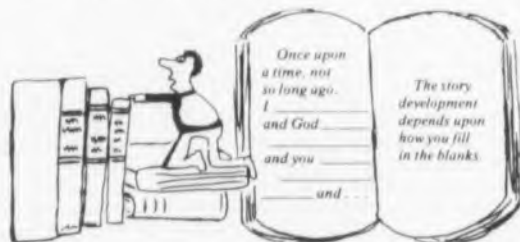 Once upon
a time, not
so long ago,
I ________
and God ________
________
and you ________
________
________ and . . .
The story
development
depends upon
how you fill
in the blanks.